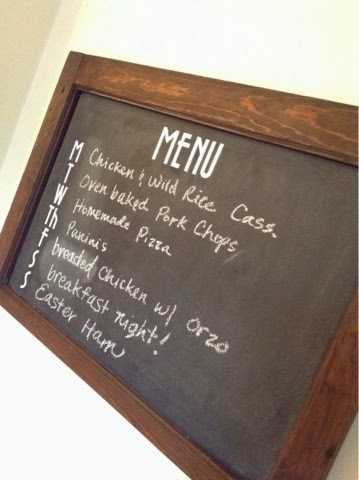 MENU
M Chicken & Wild Rice Cass.
T Oven baked Pork Chops
W Homemade Pizza
Th Panini's
F breaded Chicken w/ orzo
S breakfast night!
S Easter Ham